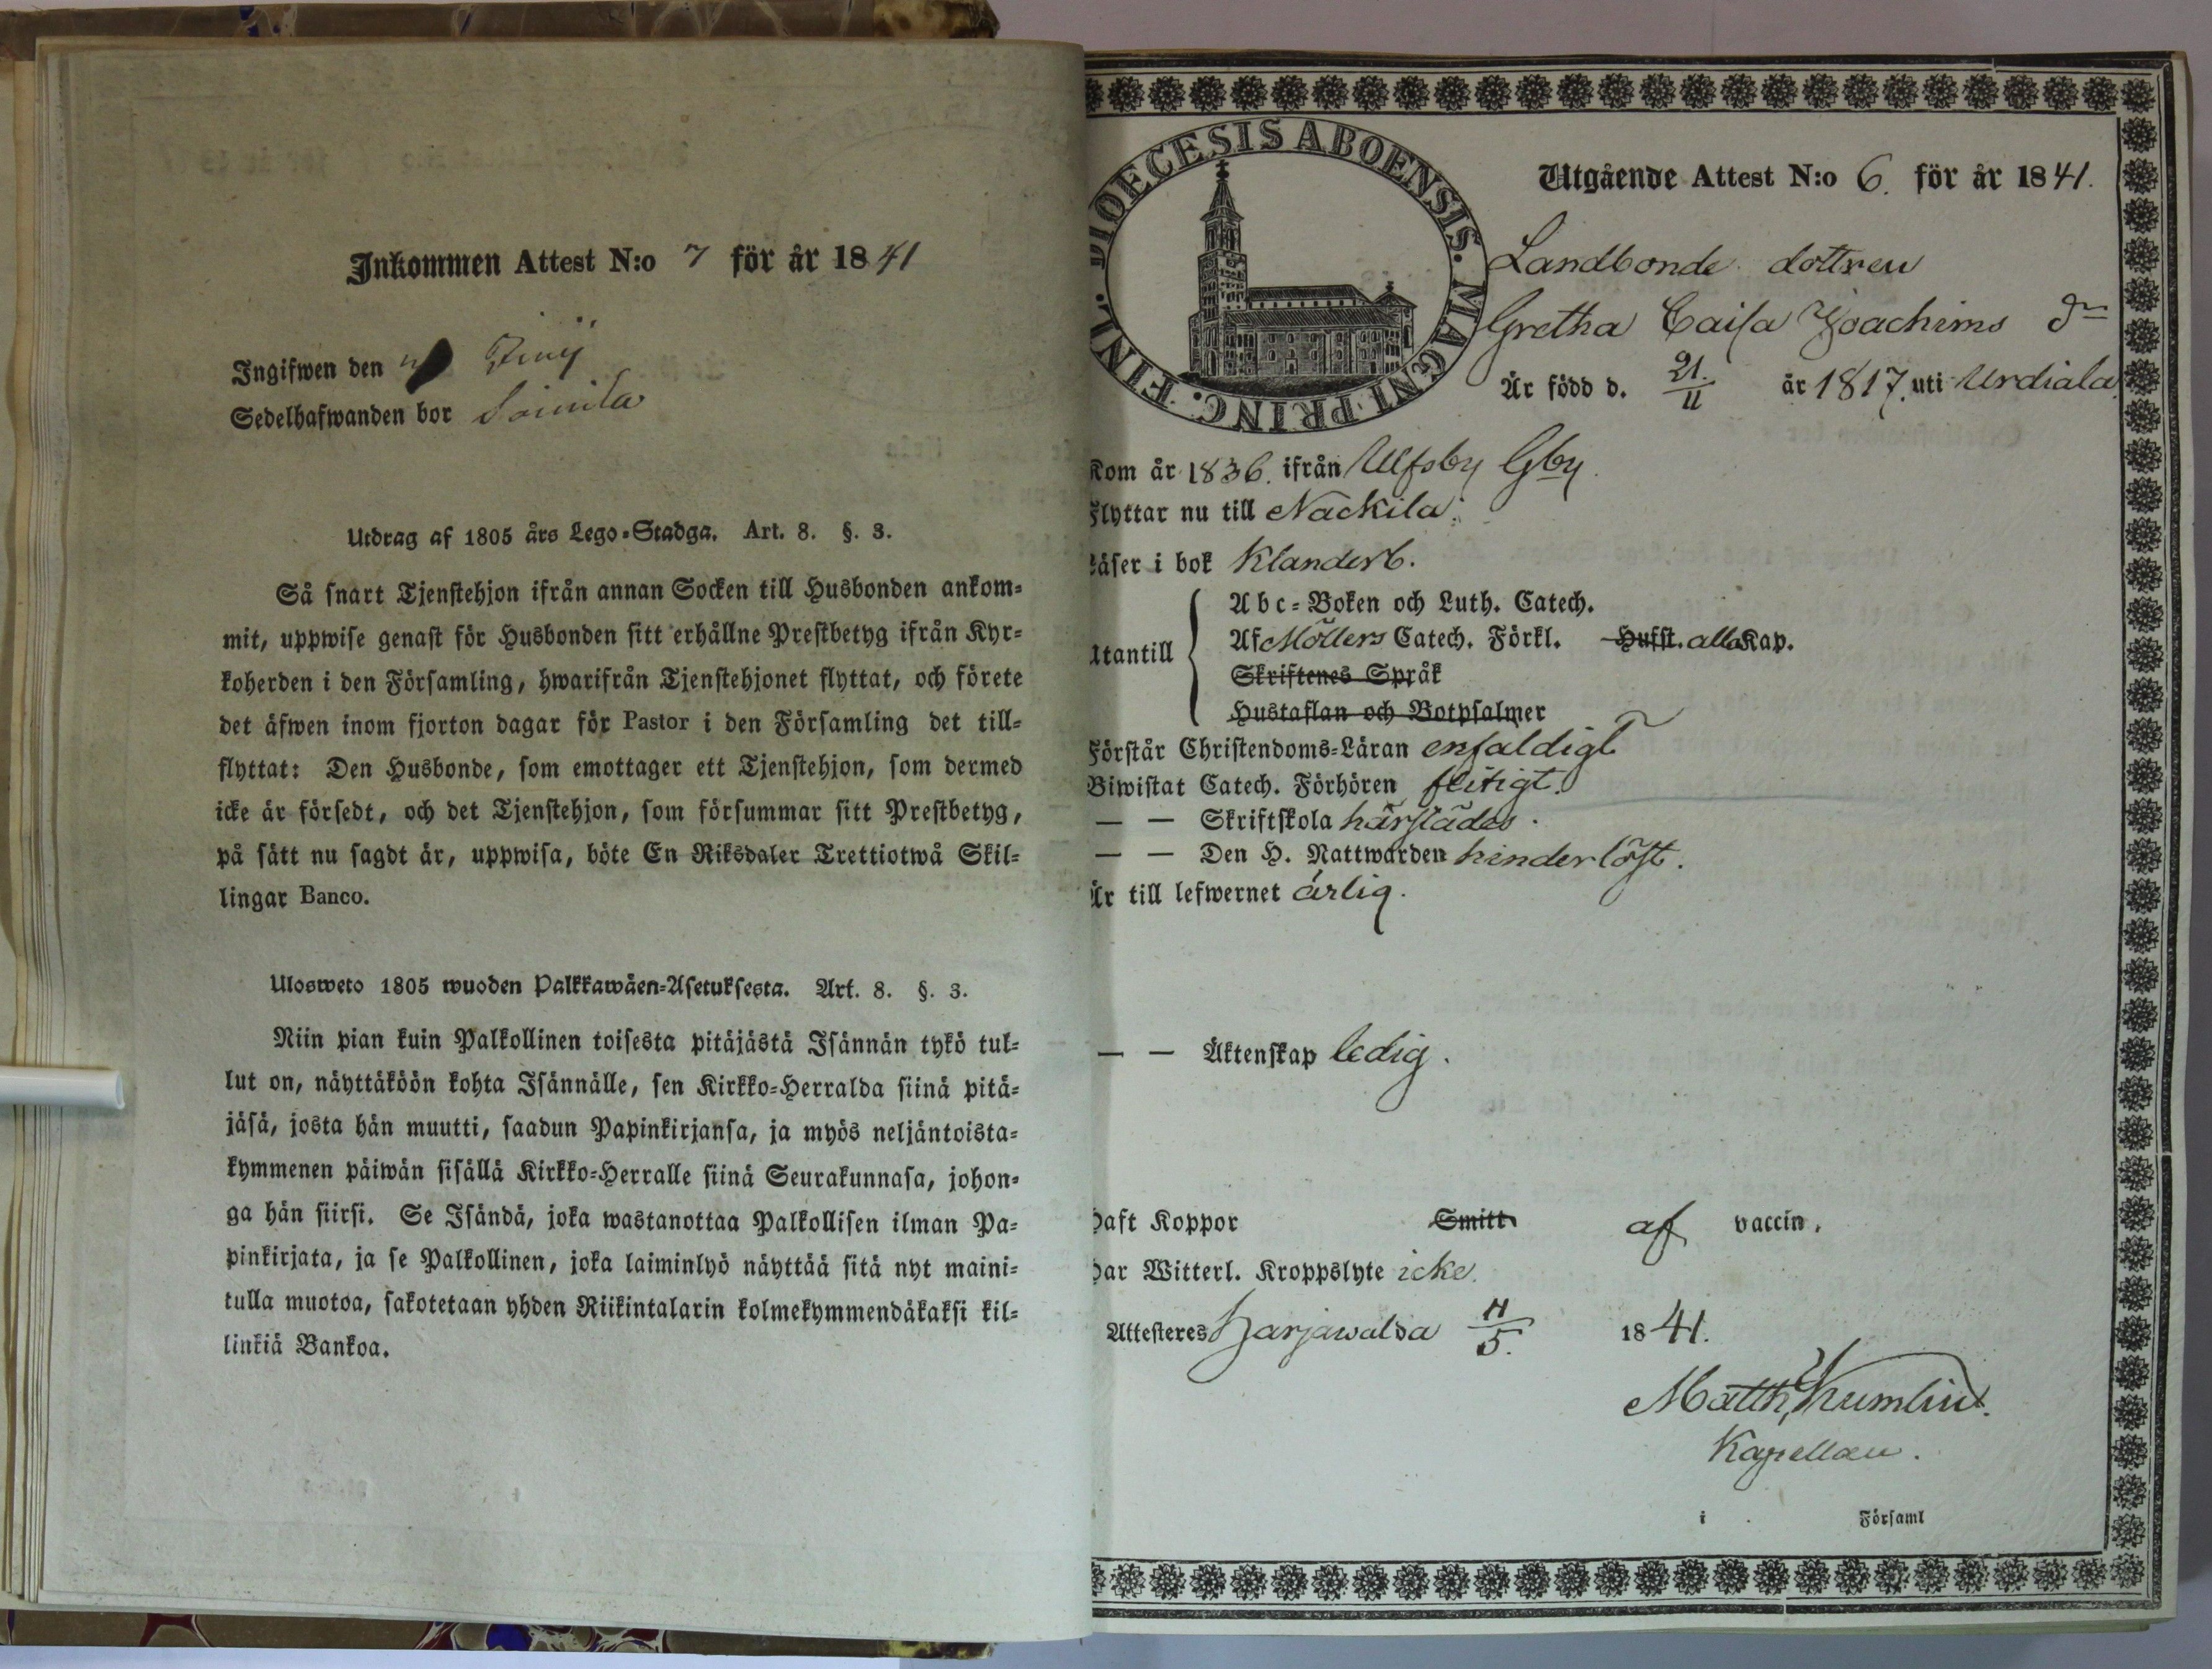 Inkommen Attest N:o 7 för år 1841
Ingifwen den Junij
Sedelhafwanden bor
Utdrag af 1805 års Lego-Stadga. Art. 8. §. 3.
Så snart Tjenstehjon ifrån annan Socken till Husbonden ankom-
mit, uppwise genast för Husbonden sitt erhållne Prestbetyg ifrån Kyr-
koherden i den Församling, hwarifrån Tjenstehjonet flyttat, och förete
det äfwen inom fjorton dagar för Pastor i den Församling det till-
flyttat: Den Husbonde, som emottager ett Tjenstehjon, som dermed
icke är försedt, och det Tjenstehjon, som försummar sitt Prestbetyg,
på sätt nu sagdt är, uppwisa, böte En Riksdaler Trettiotwå Skil-
lingar Banco.
Ulosweto 1805 wuoden Palkkawäen-Asetuksesta. Art. 8. §. 3.
Niin pian kuin Palkollinen toisesta pitäjästä Isännän tykö tul-
lut on, näyttäköön kohta Isännälle, sen Kirkko-Herralda siinä pitä-
jäsä, josta hän muutti, saadun Papinkirjansa, ja myös neljäntoista-
kymmenen päiwän sisällä Kirkko-Herralle siinä Seurakunnasa, johon-
ga hän siirsi. Se Isändä, joka wastanottaa Palkollisen ilman Pa-
pinkirjata, ja se Palkollinen, joka laiminlyö näyttää sitä nyt maini-
tulla muotoa, sakotetaan yhden Riikintalarin kolmekymmendäkaksi kil-
linkiä Bankoa.
FINL. DIOECESIS ABOENSIS. MAGNI PRINC.
Utgående Attest N:o 6. för år 1841.
Landbonde dottren
Gretha Caisa Joachims dr
Är född d. 21/11 år 1817. uti Urdiala
Kom år 1836. ifrån Ulfsby Gby
Flyttar nu till Nackila.
Läser i bok Klanderb.
Abc-Boken och Luth. Catech.
Utantill Af Möllers Catech. Förkl. Hufst. alla Kap.
Skriftenes Språk
Hustaflan och Botpsalmer
Förstår Christendoms-Läran enfaldigt
Biwistat Catech. Förhören flitigt.
— — Skriftskola härstädes.
— — Den H. Nattwarden hinderlöst.
Är till lefwernet ärlig.
— — Äktenskap ledig.
Haft Koppor Smitt af vaccin.
Har Witterl. Kroppslyte icke.
Attesteres Harjawalda 11/5. 1841.
Matth. Kumlin.
Kapellan.
i Församl